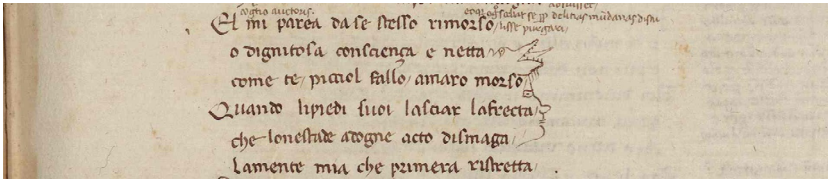 El mi parea da se stesso rimorso
o dignitosa consciença e netta
come te picciol fallo amaro morso
Quando lipiedi suoi lasciar lafrecta
che lonestade adogne acto dismaga
Lamente mia che primera ristretta